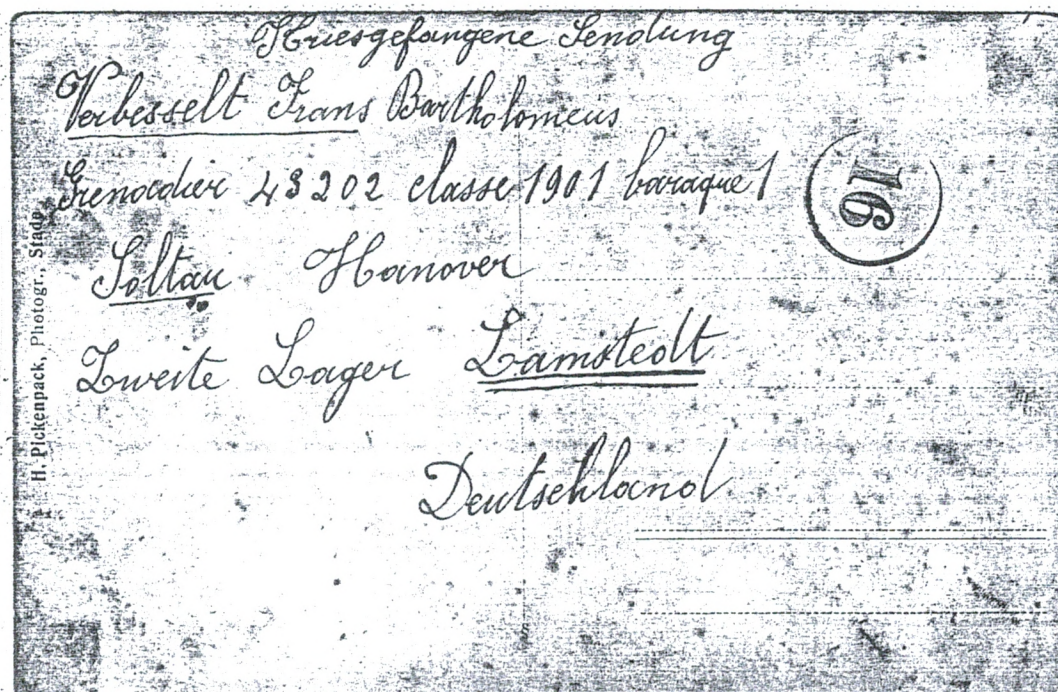 Kriesgefangene Sendung
Verbesselt Frans Bartholomeus
Grenadier 43202 classe 1901 baraque 1
16
Soltau Hanover
Zweite Lager Lamstedt
Deutschland
H. Pickenpack, Photogr., Stade